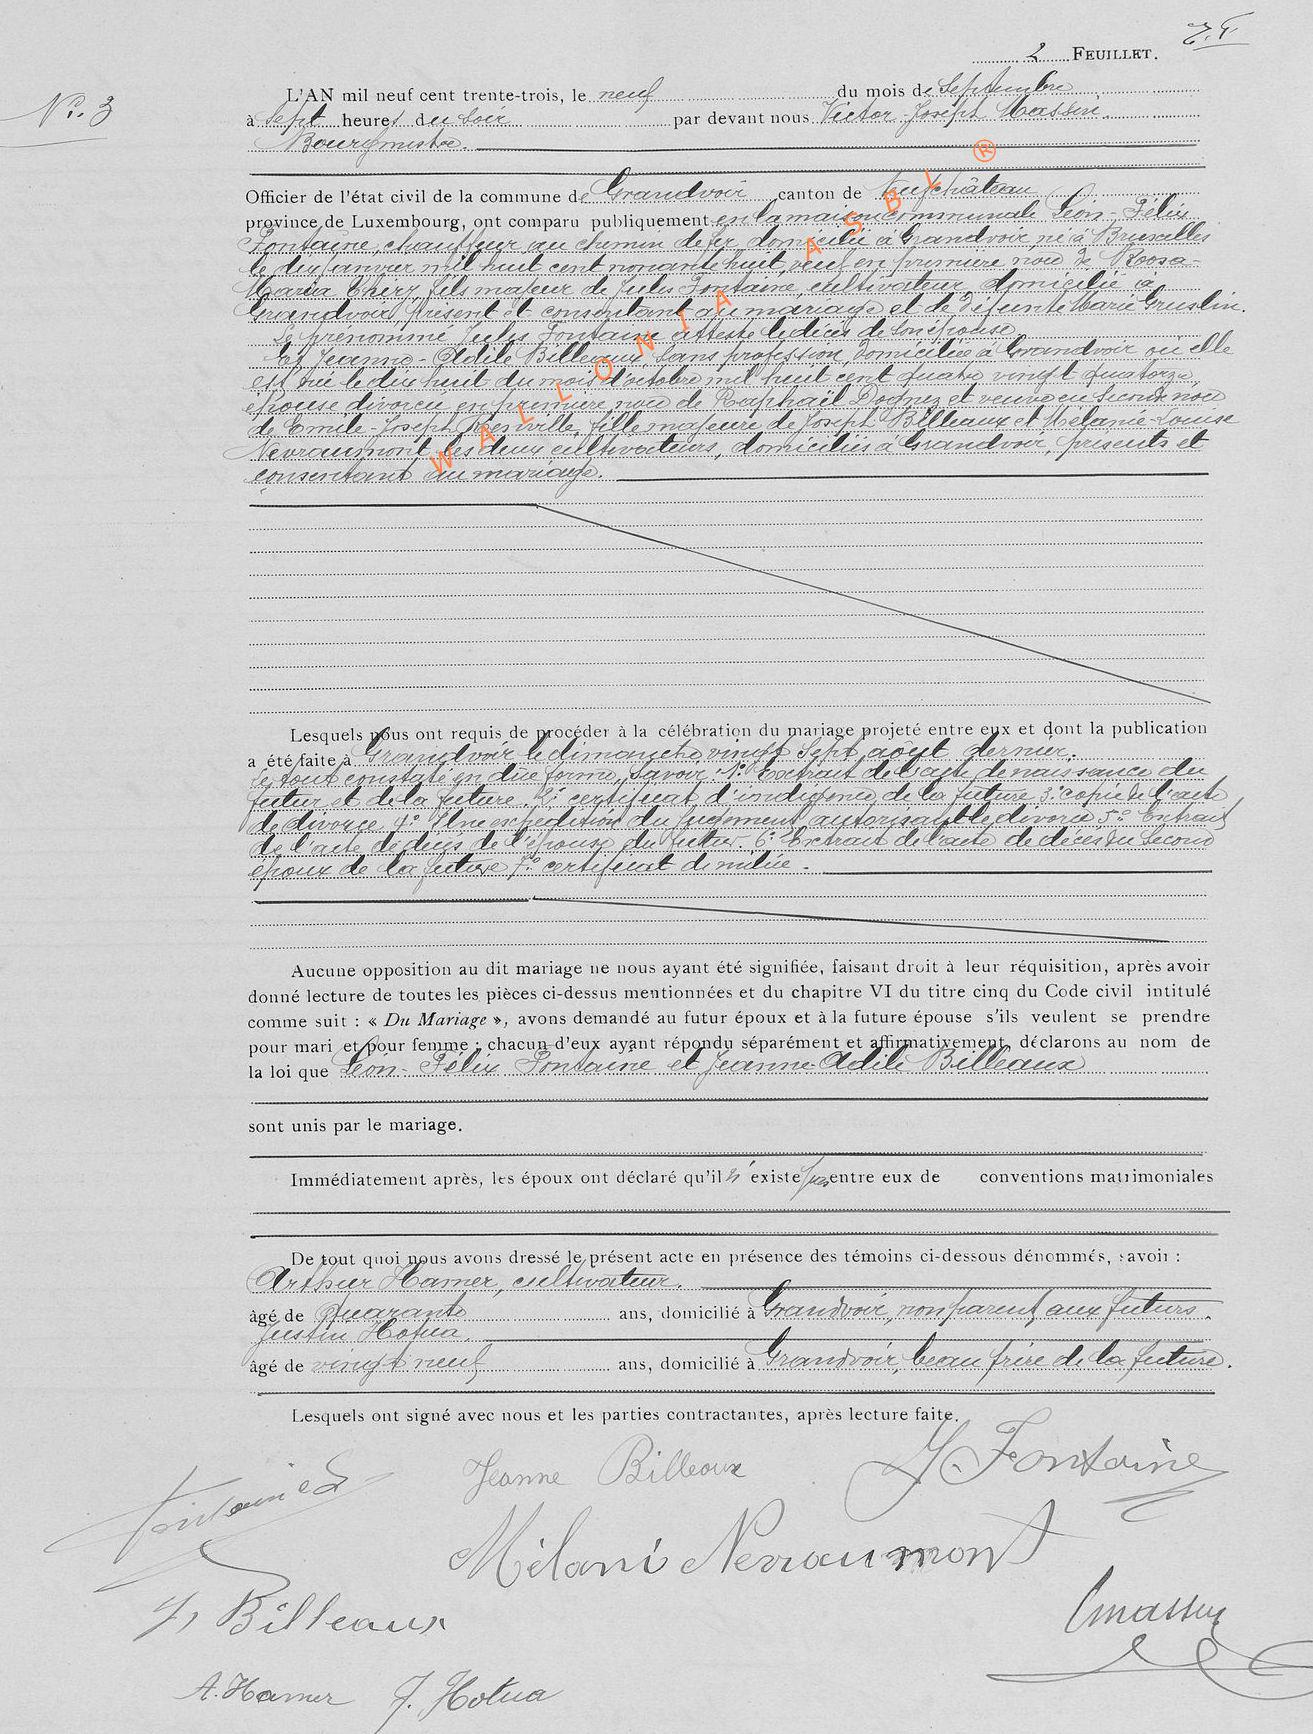 2 FEUILLET.
No. 3
L'AN mil neuf cent trente-trois, le neuf du mois de Septembre,
à Sept heures du soir par devant nous Victor Joseph Massen.
Bourgmestre.
Officier de l'état civil de la commune de Grandvoir canton de Neufchâteau
province de Luxembourg, ont comparu publiquement en la maison communale Léon-Félix
Fontaine, chauffeur au chemin de fer domicilié à Grandvoir, né à Bruxelles
le dix janvier mil huit cent nonante huit, veuf en première noce de Roosa-
Maria fils majeur de Jules Fontaine, cultivateur, domicilié à
Grandvoir, présent et consentant au mariage et de défunte Marie Gruslin.
Le prénommé Jules Fontaine atteste le décès de son épouse.
Et Jeanne-Adèle Billeaux sans profession, domiciliée à Grandvoir où elle
est née le dix huit du mois d'octobre mil huit cent quatre vingt quatorze,
épouse divorcée en première noce de Raphaël Dognez et veuve en seconde noce
de Emile-Joseph fille majeure de Joseph Billeaux et Mélanie-Louise
Nevraumont, les deux cultivateurs, domiciliés à Grandvoir, présents et
consentant au mariage.
WALLONIA ASBL ®
Lesquels nous ont requis de procéder à la célébration du mariage projeté entre eux et dont la publication
a été faite à Grandvoir le dimanche vingt sept août dernier.
Le tout constaté en due forme, savoir 1° Extrait de l'acte de naissance du
futur et de la future. 2° certificat d'indigence de la future 3° copie de l'acte
de divorce 4° Une expédition du jugement autorisant le divorce 5° Extrait
de l'acte de décès de l'épouse du futur - 6° Extrait de l'acte de décès du second
époux de la future 7° certificat de milice.
Aucune opposition au dit mariage ne nous ayant été signifiée, faisant droit à leur réquisition, après avoir
donné lecture de toutes les pièces ci-dessus mentionnées et du chapitre VI du titre cinq du Code civil intitulé
comme suit : « Du Mariage », avons demandé au futur époux et à la future épouse s'ils veulent se prendre
pour mari et pour femme ; chacun d'eux ayant répondu séparément et affirmativement, déclarons au nom de
la loi que Léon-Félix Fontaine et Jeanne-Adèle Billeaux
sont unis par le mariage.
Immédiatement après, les époux ont déclaré qu'il n'existe pas entre eux de conventions matrimoniales
De tout quoi nous avons dressé le présent acte en présence des témoins ci-dessous dénommés, savoir :
Arthur Hamer, cultivateur.
âgé de quarante ans, domicilié à Grandvoir, non parent aux futurs.
Justin Hotua.
âgé de vingt neuf ans, domicilié à Grandvoir, beau frère de la future.
Lesquels ont signé avec nous et les parties contractantes, après lecture faite.
Jeanne Billeaux
J. Fontaine
Mélani Nevraumont
J. Billeaux
A. Hamer J. Hotua